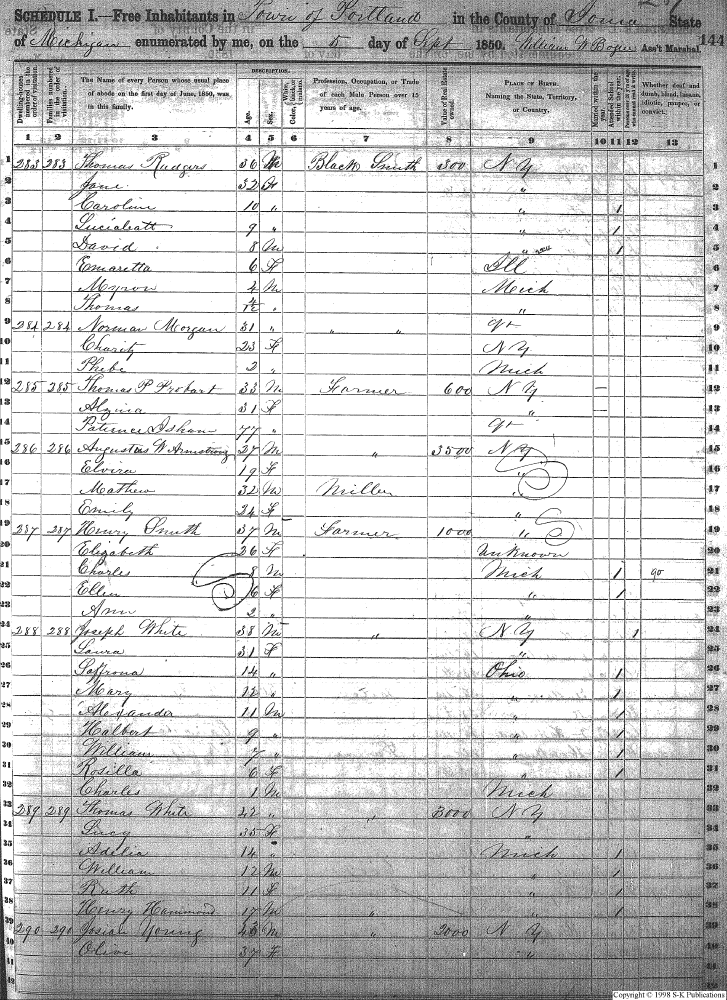 SCHEDULE I.—Free Inhabitants in Town of Portland in the County of Ionia State
of Michigan enumerated by me, on the 5 day of Sept 1850. William W Bogue Ass't Marshal. 144
DESCRIPTION.
Dwelling-houses numbered in the order of visitation. Families numbered in the order of visitation. The Name of every Person whose usual place of abode on the first day of June, 1850, was in this family. Age. Sex. Color, White, black, or mulatto. Profession, Occupation, or Trade of each Male Person over 15 years of age. Value of Real Estate owned. PLACE OF BIRTH. Naming the State, Territory, or Country. Married within the year. Attended School within the year. Whether deaf and dumb, blind, insane, idiotic, pauper, or convict.
1 2 3 4 5 6 7 8 9 10 11 12 13
1 283 283 Thomas Rudgers 36 M Black Smith 300 N Y 1
2 Jane 32 F " 2
3 Caroline 10 " " 1 3
4 9 " " 1 4
5 David 8 M " 1 5
6 Emaretta 6 F Ill 6
7 Myron 4 M Mich 7
8 Thomas 4/12 " " 8
9 284 284 Norman Morgan 31 " " " Vt 9
10 Charity 23 F N Y 10
11 Phebe 2 " Mich 11
12 285 285 Thomas P Probart 33 M Farmer 600 N Y 12
13 Alzina 31 F " 13
14 Patience Isham 77 " Vt 14
15 286 286 Augustus W Armstrong 27 M " 3500 N Y 15
16 Elvira 19 F " 16
17 Mathew 32 M Miller " 17
18 Emily 24 F " 18
19 287 287 Henry Smith 37 M Farmer 1000 " 19
20 Elizabeth 26 F Unknown 20
21 Charles 8 M Mich 1 21
22 Ellen 6 F " 1 22
23 Ann 2 " 23
24 288 288 Joseph White 38 M " N Y 1 24
25 Laura 31 F " 25
26 Saffrona 14 " Ohio 1 26
27 Mary 12 " " 1 27
28 Alexander 11 M " 1 28
29 Halbert 9 " " 1 29
30 William 7 " " 1 30
31 Rosilla 6 F " 1 31
32 Charles 1 M Mich 32
33 289 289 Thomas White 42 " " 3000 N Y 33
34 Lucy 35 F " 34
35 Adelia 14 " Mich 1 35
36 William 12 M " 1 36
37 Ruth 11 F " 1 37
38 Henry Hammond 17 M " " 1 38
39 290 290 Josiah Young 45 M " 2000 N Y 39
40 Olive 37 F " 40
41 41
42 42
Copyright © 1998 S-K Publications